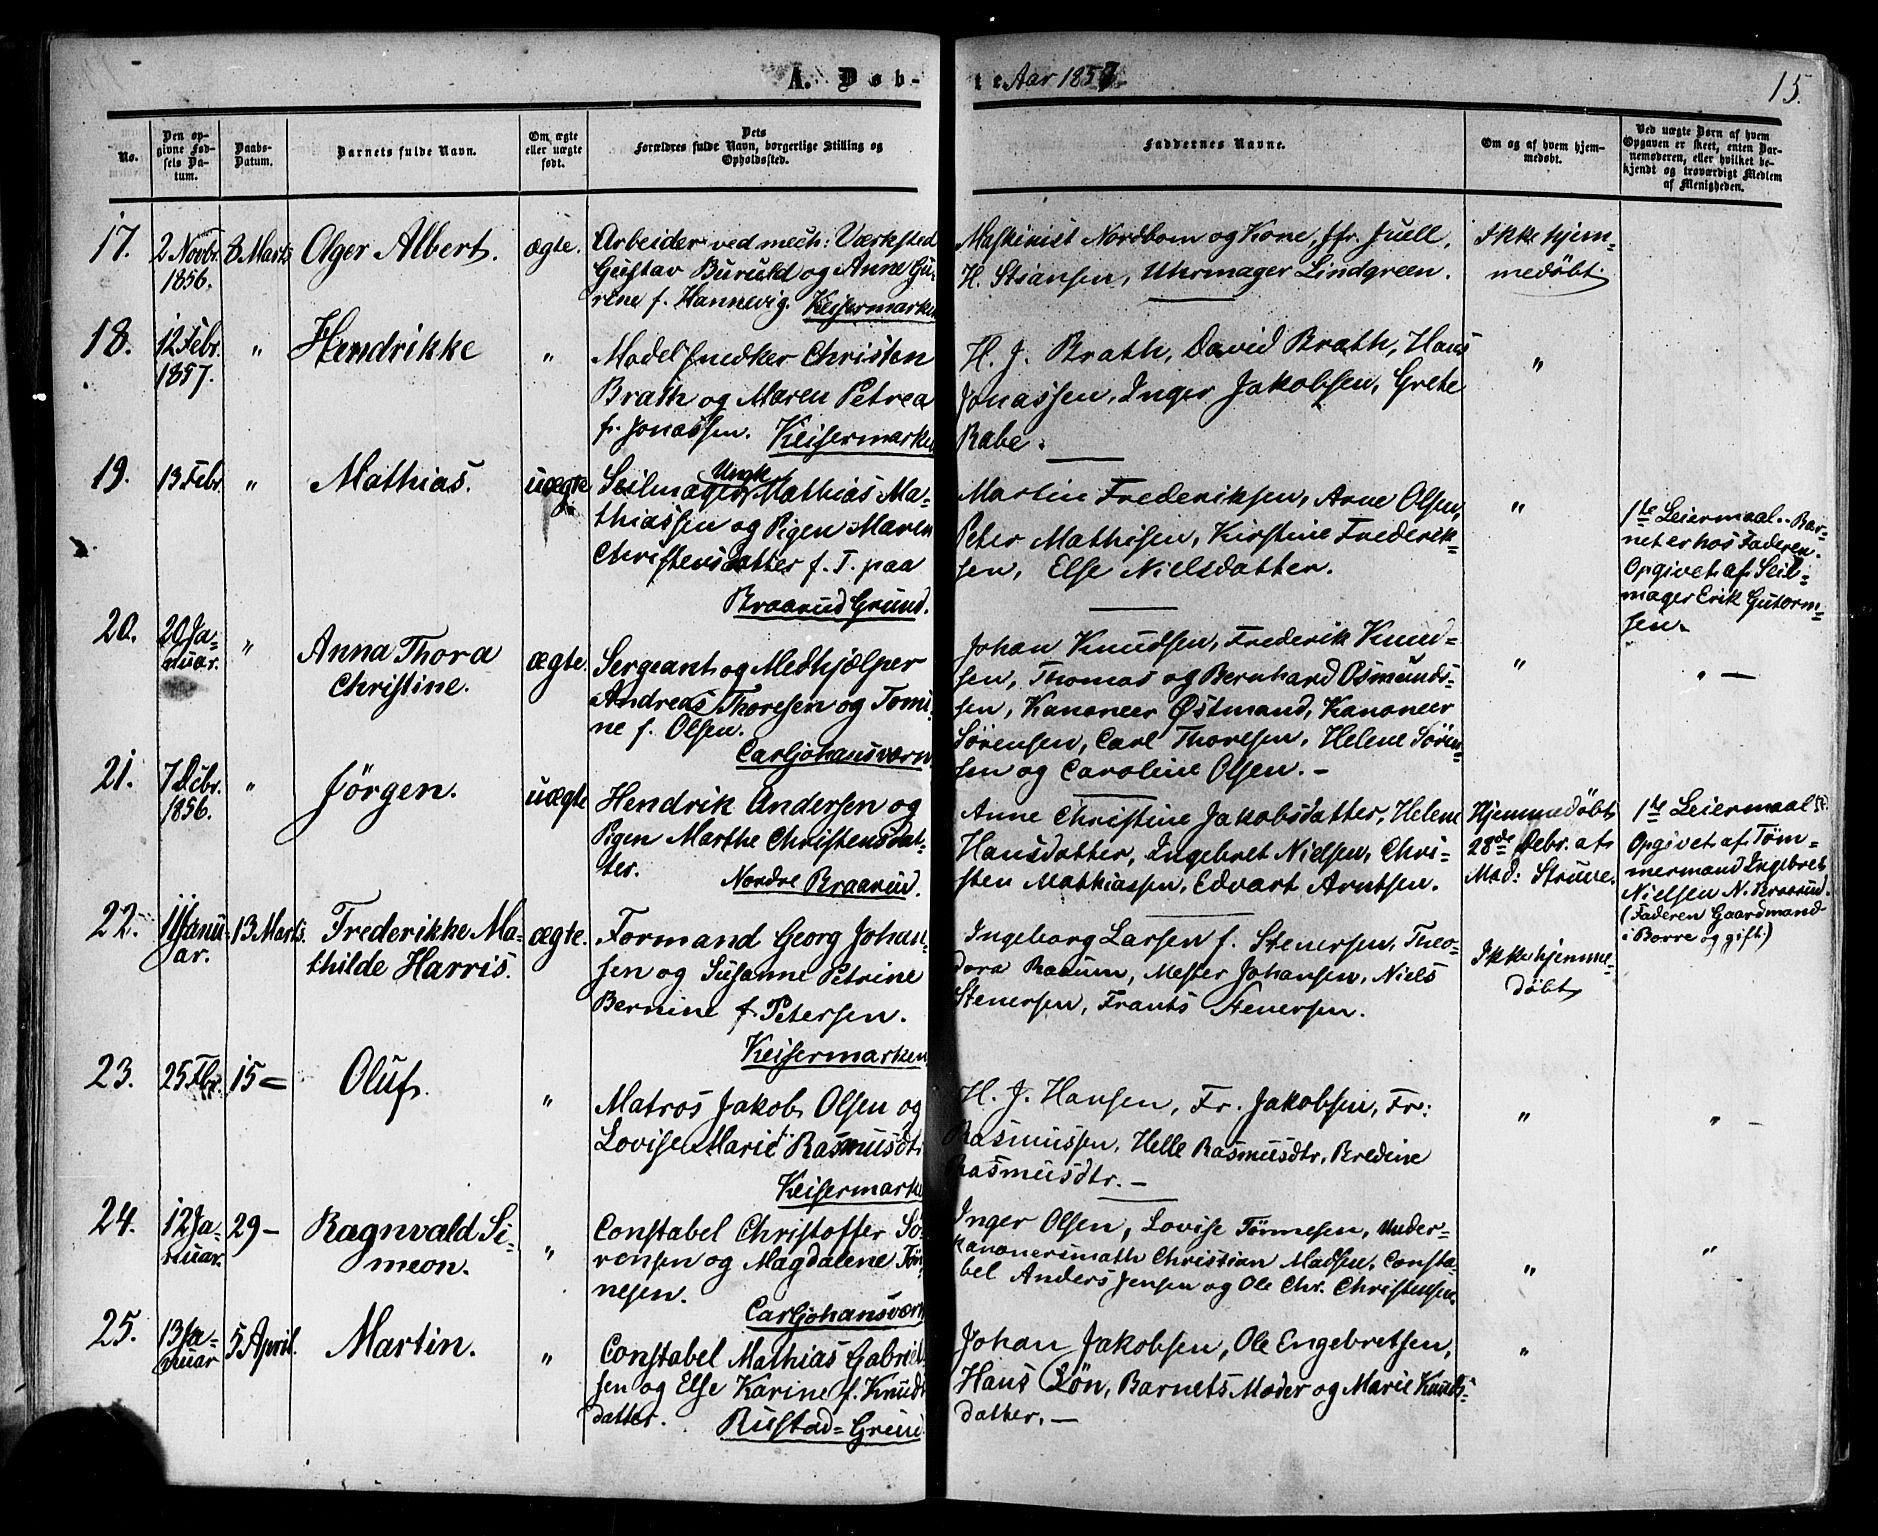 A. Døb-
te Aar 1857.
15.
No.
Den opgivne Fødsels Datum.
Daabs-Datum.
Barnets fulde Navn.
Om ægte eller uægte født.
Dets Forældres fulde Navn, borgerlige Stilling og Opholdssted.
Faddernes Navne.
Om og af hvem hjemmedøbt.
Ved uægte Børn af hvem Opgaven er skeet, enten Barnemoderen, eller hvilket bekjendt og troværdigt Medlem af Menigheden.
17. 2 Novbr. 1856. 8 Marts Olger Albert. ægte.
Arbeider ved mech: Værksted
Gustav Buruld og Anne Gu-
rine f. Hannevig. Keisermarken
Maskinist Nordbom og Kone, Jfr. Juell,
H. Stiansen, Uhrmager Lindgreen.
Ikke hjem-
medøbt.
18. 12 Febr. 1857. " Hendrikke "
Modelsnedker Christen
Brath og Maren Petrea
f. Jonassen. Keisermarken
H. J. Brath, David Brath, Hans
Jonassen, Inger Jakobsen, Grete
Rabe.
"
19. 13 Febr. " Mathias. uægte
Seilmager Ungk. Mathias Ma-
thiassen og Pigen Maren
Christensdatter f. T. paa
Braarud Grund.
Martin Frederiksen, Arne Olsen,
Peter Mathisen, Kirstine Frederik-
sen, Else Nielsdatter.
"
1te Leiermaal. Bar-
net er hos Faderen.
Opgivet af Seil-
mager Erik Gutorm-
sen.
20. 20 Ja-
nuar. " Anna Thora
Christine. ægte.
Sergeant og Medhjælper
Andreas Thoresen og Tomi-
ne f. Olsen.
Carljohansværn
Johan Knudsen, Frederik Knud-
sen, Thomas og Bernhard Osmunds-
sen, Kanoneer Østmand, Kanoneer
Sörensen, Carl Thoresen, Helene Sören-
sen og Caroline Olsen. -
"
" -
21. 7 Debr. 1856. " Jörgen. uægte
Hendrik Andersen og
Pigen Marthe Christensdat-
ter. Nordre Braarud.
Anne Christine Jakobsdatter, Helene
Hansdatter, Ingebret Nielsen, Chri-
sten Mathiassen, Edvart Arntsen.
Hjemmedøbt
28de Debr. af
Mad: Struve.
1te Leiermaal
Opgivet af Tøm-
mermand Ingebret
Nielsen N. Braarud.
(Faderen Gaardmand
i Borre og gift.)
22. 11 Janu-
ar. 13 Marts. Frederikke Ma-
thilde Harris. ægte.
Formand Georg Johan-
sen og Susanne Petrine
Bernine f. Petersen.
Keisermarken
Ingeborg Larsen f. Stenersen, Theo-
dora Raum, Mester Johansen, Niels
Stenersen, Frants Stenersen.
Ikke hjemme-
døbt
23. 25 Fbr. 15 - Oluf. "
Matros Jakob Olsen og
Lovise Marie Rasmusdtr.
Keisermarken
H. J. Hansen, Fr. Jakobsen, Fr:
Rasmussen, Helle Rasmusdtr, Bredine
Rasmusdtr. -
"
" -
24. 12 Ja-
nuar. 29 - Ragnvald Si-
meon. "
Constabel Christoffer Sö-
rensen og Magdalene Tön-
nesen.
Carljohansværn
Inger Olsen, Lovise Tönnesen, Under-
kanonersmath Christian Madsen, Consta-
bel Anders Jensen og Ole Chr. Christensen.
"
"
25. 13 Ja-
nuar 5 April. Martin. "
Constabel Mathias Gabriel-
sen og Else Karine f. Knuds-
datter. Rustad-Grund
Johan Jakobsen, Ole Engebretsen,
Hans Lön, Barnets Moder og Marie Knuds-
datter. -
"